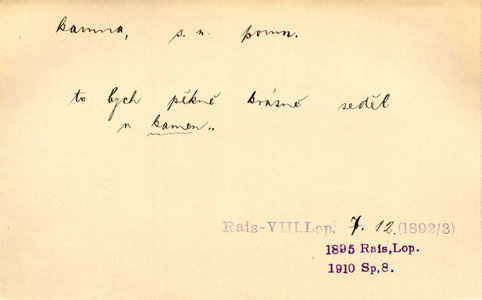 kamna, s. n. pomn.
to bych pěkně krásně seděl
u kamen..
Rais-VIII.Lop. 7. 12. (1892/3)
1895 Rais,Lop.
1910 Sp,8.